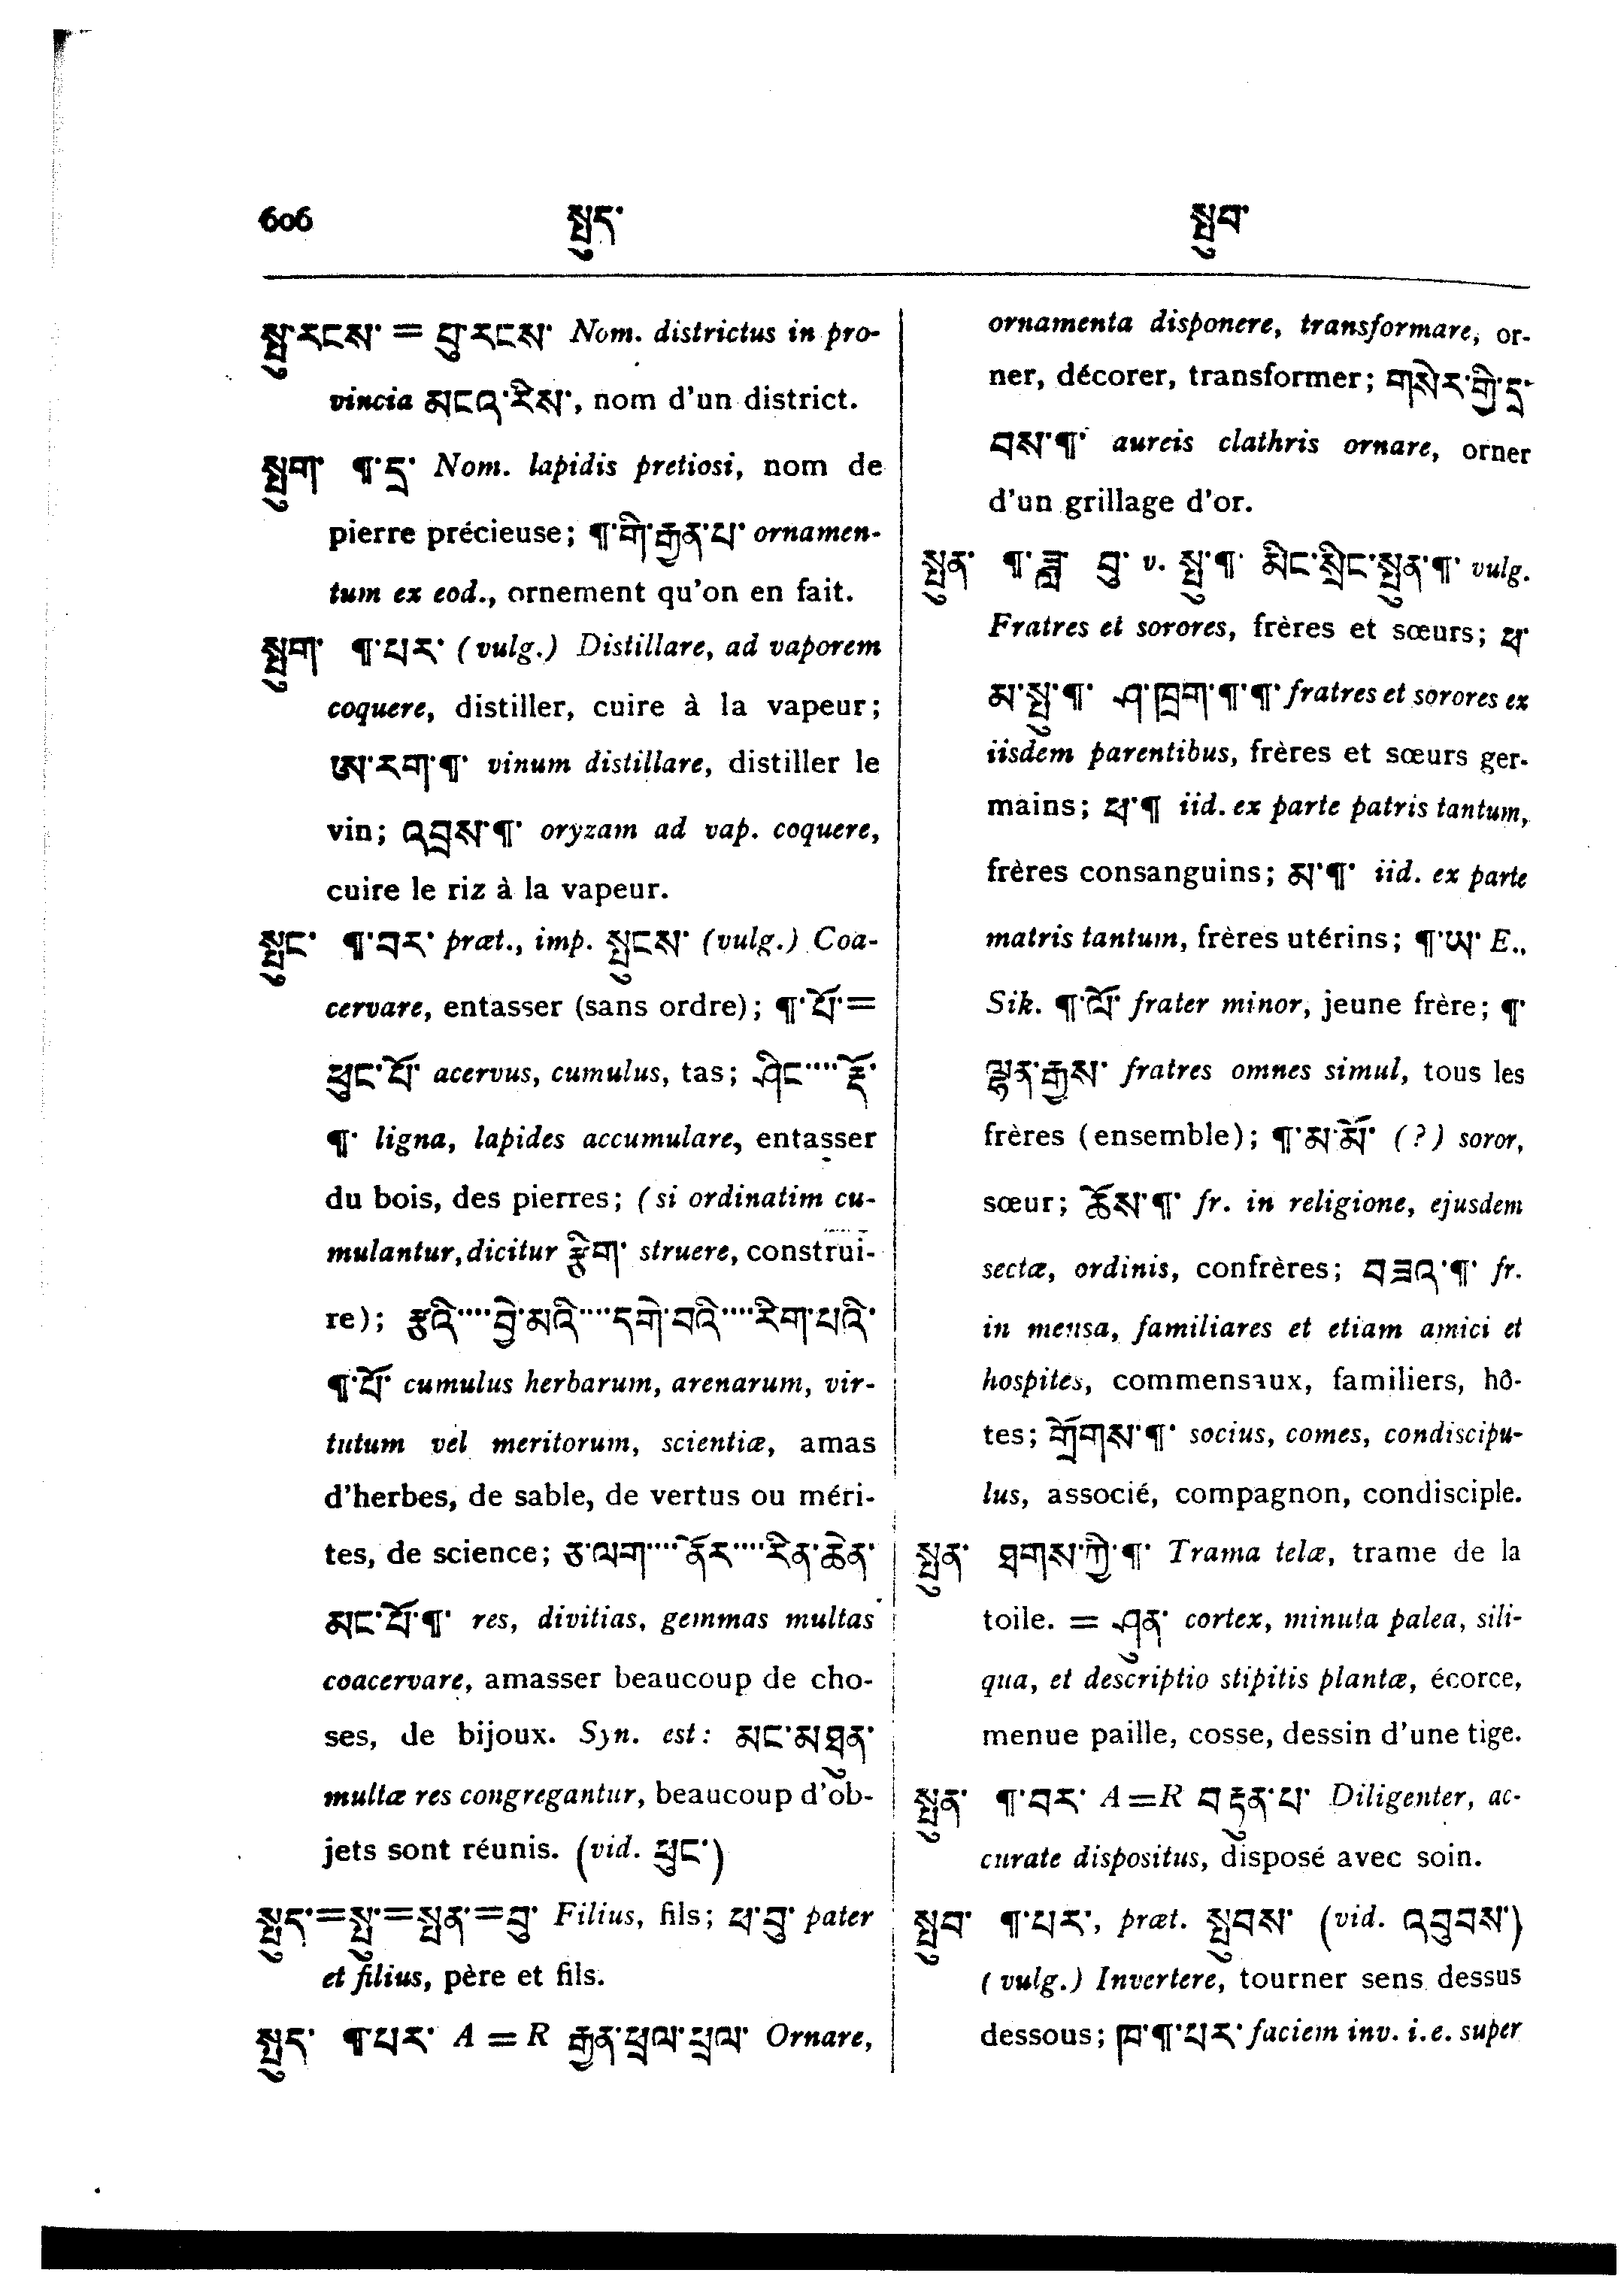 606 སྤུད་ སྤུབ་
སྤུ་རངས་ = བུ་རངས་ Nom. districtus in pro-
vincia མངའ་རིས་, nom d'un district.
སྤུག་ ¶་དྲ་ Nom. lapidis pretiosi, nom de
pierre précieuse; ¶་གི་རྒྱན་པ་ ornamen-
tum ex eod., ornement qu'on en fait.
སྤུག་ ¶་པར་ (vulg.) Distillare, ad vaporem
coquere, distiller, cuire à la vapeur;
ཨ་རག་¶་ vinum distillare, distiller le
vin; འབྲས་¶་ oryzam ad vap. coquere,
cuire le riz à la vapeur.
སྤུང་ ¶་བར་ præt., imp. སྤུངས་ (vulg.) Coa-
cervare, entasser (sans ordre); ¶་པོ་=
ཕུང་པོ་ acervus, cumulus, tas; ཤིང་····རྡོ་
¶་ ligna, lapides accumulare, entasser
du bois, des pierres; (si ordinatim cu-
mulantur, dicitur རྩིག་ struere, construi-
re); རྩྭའི་····བྱེ་མའི་····དགེ་བའི་····རིག་པའི་
¶་པོ་ cumulus herbarum, arenarum, vir-
tutum vel meritorum, scientiæ, amas
d'herbes, de sable, de vertus ou méri-
tes, de science; ཅ་ལག་····ནོར་····རིན་ཆེན་
མང་པོ་¶་ res, divitias, gemmas multas
coacervare, amasser beaucoup de cho-
ses, de bijoux. Syn. est: མང་མཐུན་
multæ res congregantur, beaucoup d'ob-
jets sont réunis. (vid. ཕུང་)
སྤུད་=སྤུ་=སྤུན་=བུ་ Filius, fils; ཕ་བུ་ pater
et filius, père et fils.
སྤུད་ ¶་པར་ A = R རྒྱན་ཕྲལ་ཕྲལ་ Ornare,
ornamenta disponere, transformare, or-
ner, décorer, transformer; གསེར་གྱི་དྲ་
བས་¶་ aureis clathris ornare, orner
d'un grillage d'or.
སྤུན་ ¶་ཟླ་ བུ་ v. སྤུ་¶་ མིང་སྲིང་སྤུན་¶་ vulg.
Fratres et sorores, frères et sœurs; ཕ་
མ་སྤུ་¶་ ཤ་ཁྲག་¶་¶་ fratres et sorores ex
iisdem parentibus, frères et sœurs ger-
mains; ཕ་¶ iid. ex parte patris tantum,
frères consanguins; མ་¶་ iid. ex parte
matris tantum, frères utérins; ¶་ཡ་ E.,
Sik. ¶་ལོ་ frater minor, jeune frère; ¶་
ལྷན་རྒྱས་ fratres omnes simul, tous les
frères (ensemble); ¶་མ་མོ་ (?) soror,
sœur; ཆོས་¶་ fr. in religione, ejusdem
sectæ, ordinis, confrères; བཟའ་¶་ fr.
in mensa, familiares et etiam amici et
hospites, commensaux, familiers, hô-
tes; གྲོགས་¶་ socius, comes, condiscipu-
lus, associé, compagnon, condisciple.
སྤུན་ ཐགས་ཀྱི་¶་ Trama telæ, trame de la
toile. = ཤུན་ cortex, minuta palea, sili-
qua, et descriptio stipitis plantæ, écorce,
menue paille, cosse, dessin d'une tige.
སྤུན་ ¶་བར་ A=R བརྟུན་པ་ Diligenter, ac-
curate dispositus, disposé avec soin.
སྤུབ་ ¶་པར་, præt. སྤུབས་ (vid. འབུབས་)
(vulg.) Invertere, tourner sens dessus
dessous; ཁ་¶་པར་ faciem inv. i.e. super